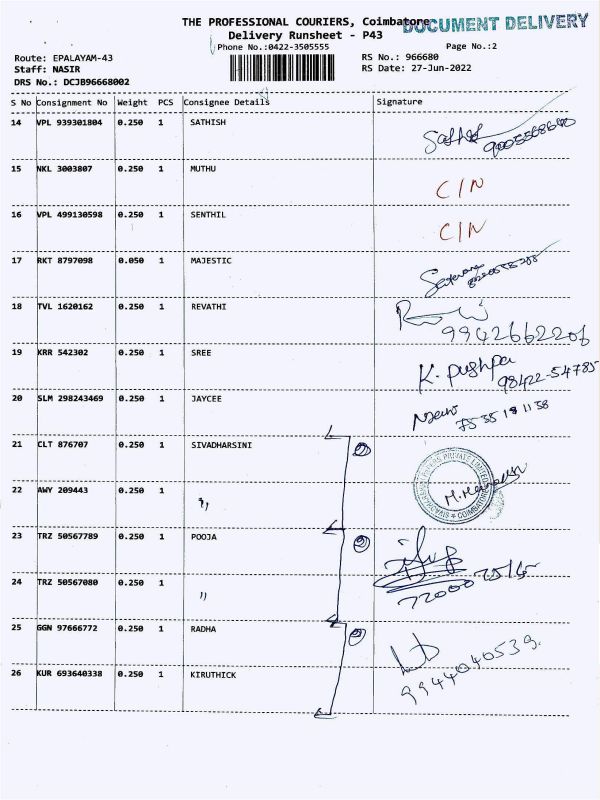 THE PROFESSIONAL COURIERS, Coimbatore
DOCUMENT DELIVERY
Delivery Runsheet - P43
Phone No.:0422-3505555
Page No.:2
Route: EPALAYAM-43
RS No.: 966680
Staff: NASIR
RS Date: 27-Jun-2022
DRS No.: DCJB96668002
S No Consignment No Weight PCS Consignee Details Signature
14 VPL 939301804 0.250 1 SATHISH
15 NKL 3003807 0.250 1 MUTHU C/N
16 VPL 499130598 0.250 1 SENTHIL C/N
17 RKT 8797098 0.050 1 MAJESTIC
18 TVL 1620162 0.250 1 REVATHI
9942662206
19 KRR 542302 0.250 1 SREE K. pushpa
98422-54785
20 SLM 298243469 0.250 1 JAYCEE
21 CLT 876707 0.250 1 SIVADHARSINI 2
22 AWY 209443 0.250 1 "
23 TRZ 50567789 0.250 1 POOJA 2
24 TRZ 50567080 0.250 1 "
25 GGN 97666772 0.250 1 RADHA 2
9944040539.
26 KUR 693640338 0.250 1 KIRUTHICK